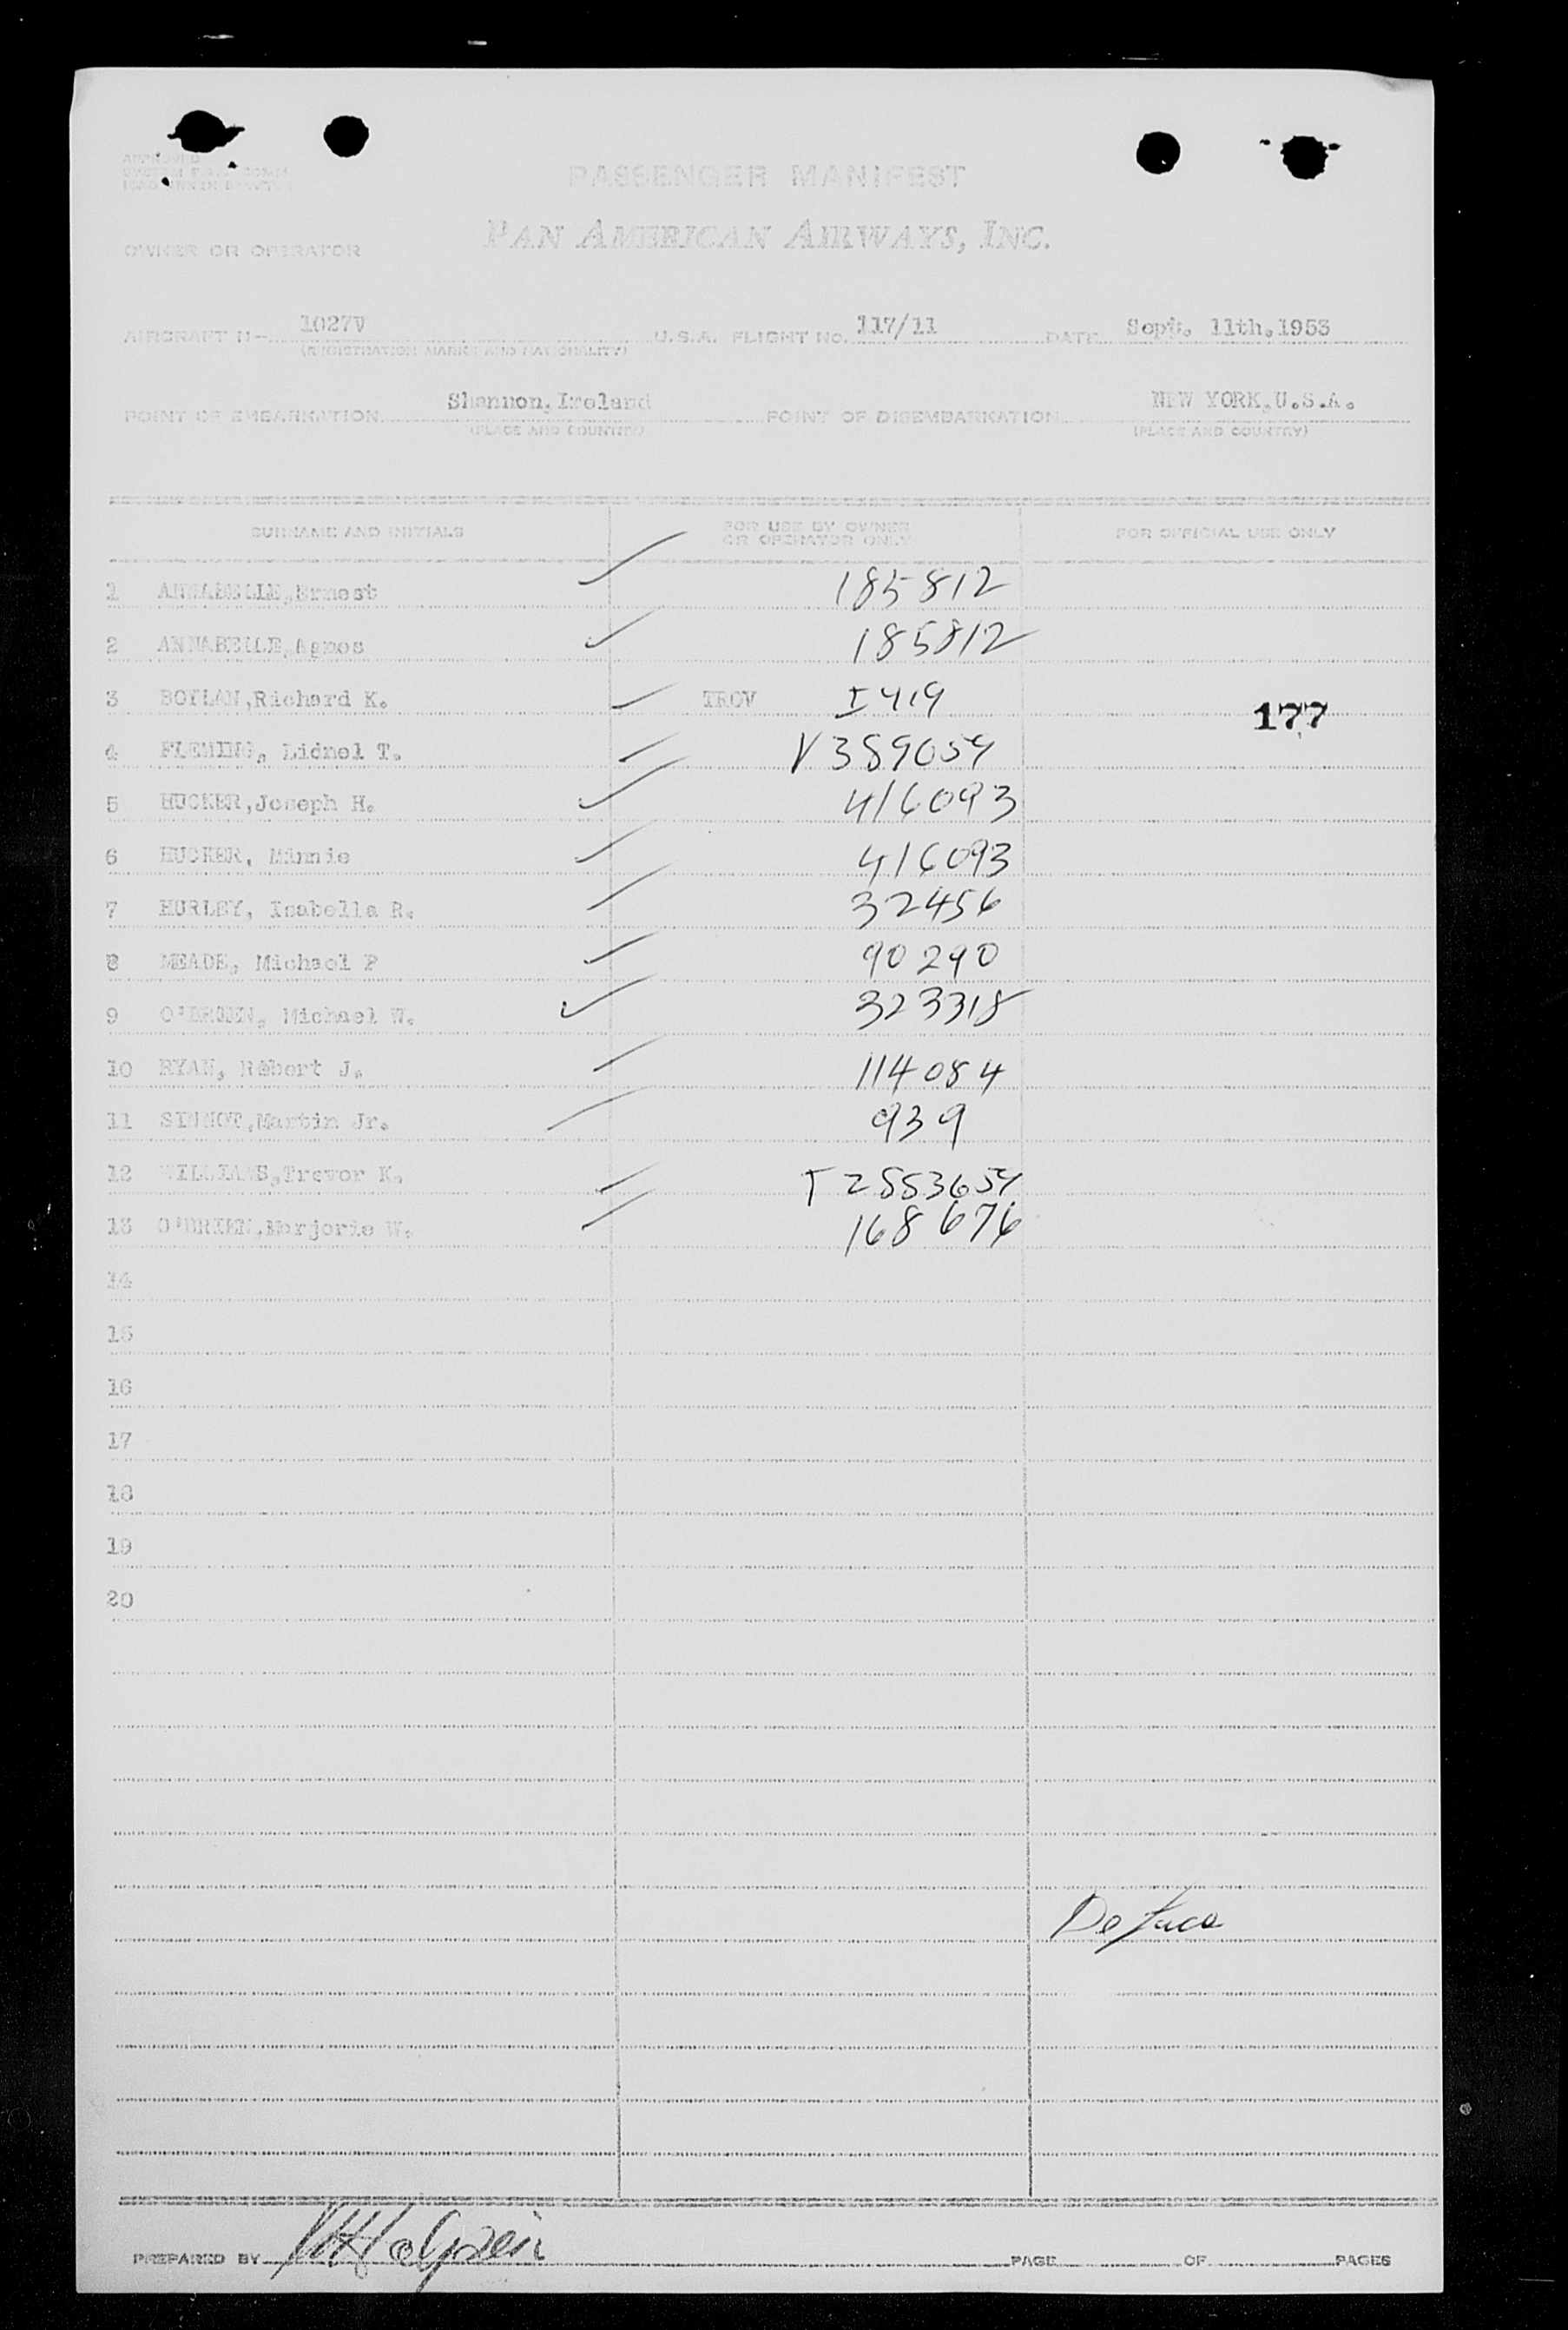 APPROVED
PASSENGER MANIFEST
OWNER OR OPERATOR PAN AMERICAN AIRWAYS, INC.
AIRCRAFT N- 1027V U.S.A. FLIGHT NO. 117/11 DATE Sept. 11th.1953
(REGISTRATION MARKS AND NATIONALITY)
POINT OF EMBARKATION Shannon, Ireland POINT OF DISEMBARKATION NEW YORK,U.S.A.
(PLACE AND COUNTRY) (PLACE AND COUNTRY)
SURNAME AND INITIALS FOR USE BY OWNER OR OPERATOR ONLY FOR OFFICIAL USE ONLY
1 ANNABELLE,Ernest 185812
2 ANNABELLE,Agnes 185812
3 BOYLAN,Richard K. TROV I419 177
4 FLEMING, Lionel T. V389059
5 HUCKER,Joseph H. 416093
6 HUCKER, Minnie 416093
7 HURLEY, Isabella R. 32456
8 MEADE, Michael P 90290
9 O'BRIEN, Michael W. 323318
10 RYAN, Robert J. 114084
11 SINNOT,Martin Jr. 939
12 WILLIAMS,Trevor K. I 2553659
13 O'BRIEN,Marjorie W. 168676
14
15
16
17
18
19
20
PREPARED BY PAGE OF PAGES